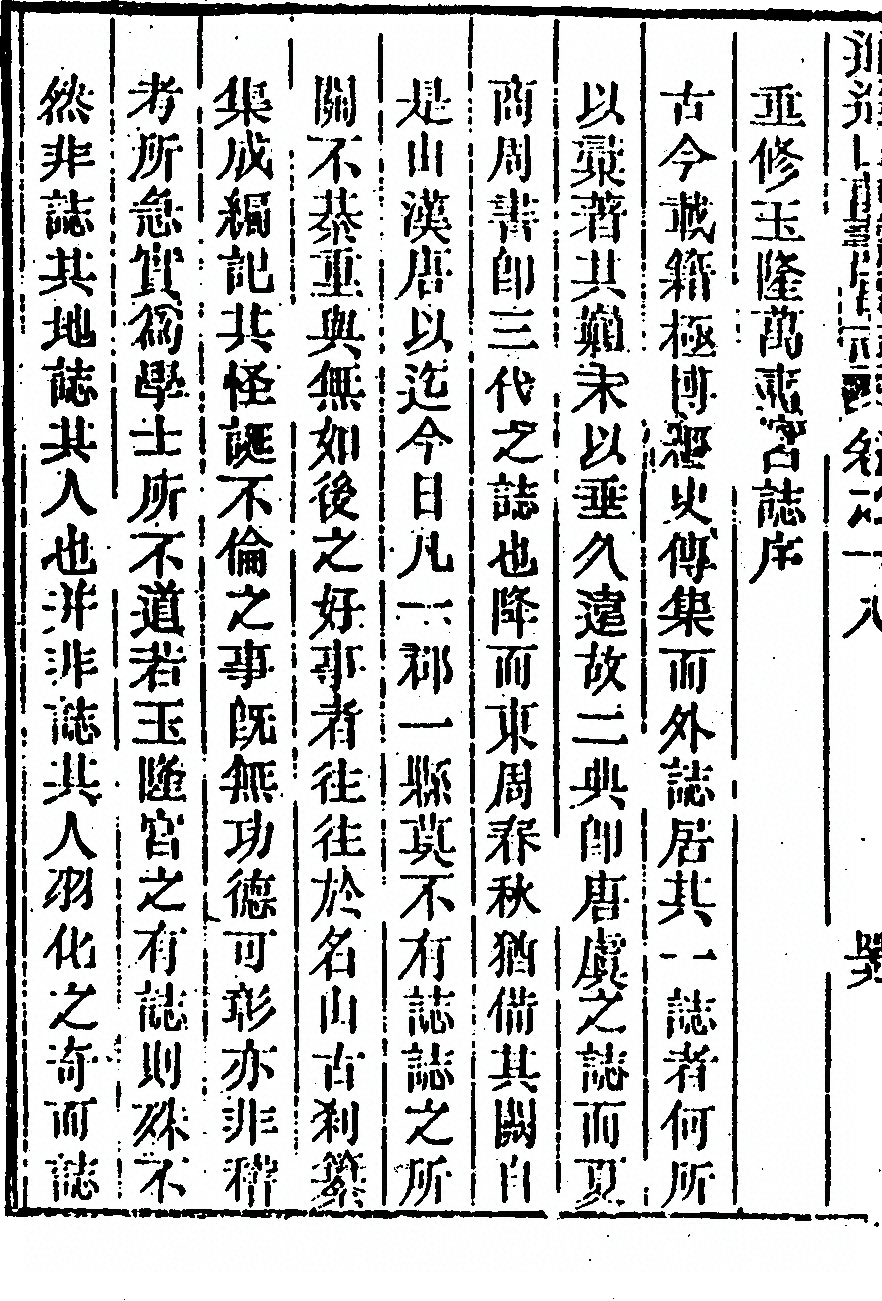 逍遙山萬壽宮志卷之十八
重修玉隆萬壽宮誌序
古今載籍極博經史傳集而外誌居其一誌者何所
以彙著其巔末以垂久遠故二典卽唐虞之誌而夏
商周書卽三代之誌也降而東周春秋猶備其闕自
是由漢唐以迄今日凡一郡一縣莫不有誌誌之所
關不綦重與無如後之好事者往往於名山古刹纂
集成編記其怪誕不倫之事旣無功德可彰亦非稽
考所急實爲學士所不道若玉隆宮之有誌則殊不
然非誌其地誌其人也并非誌其人羽化之奇而誌